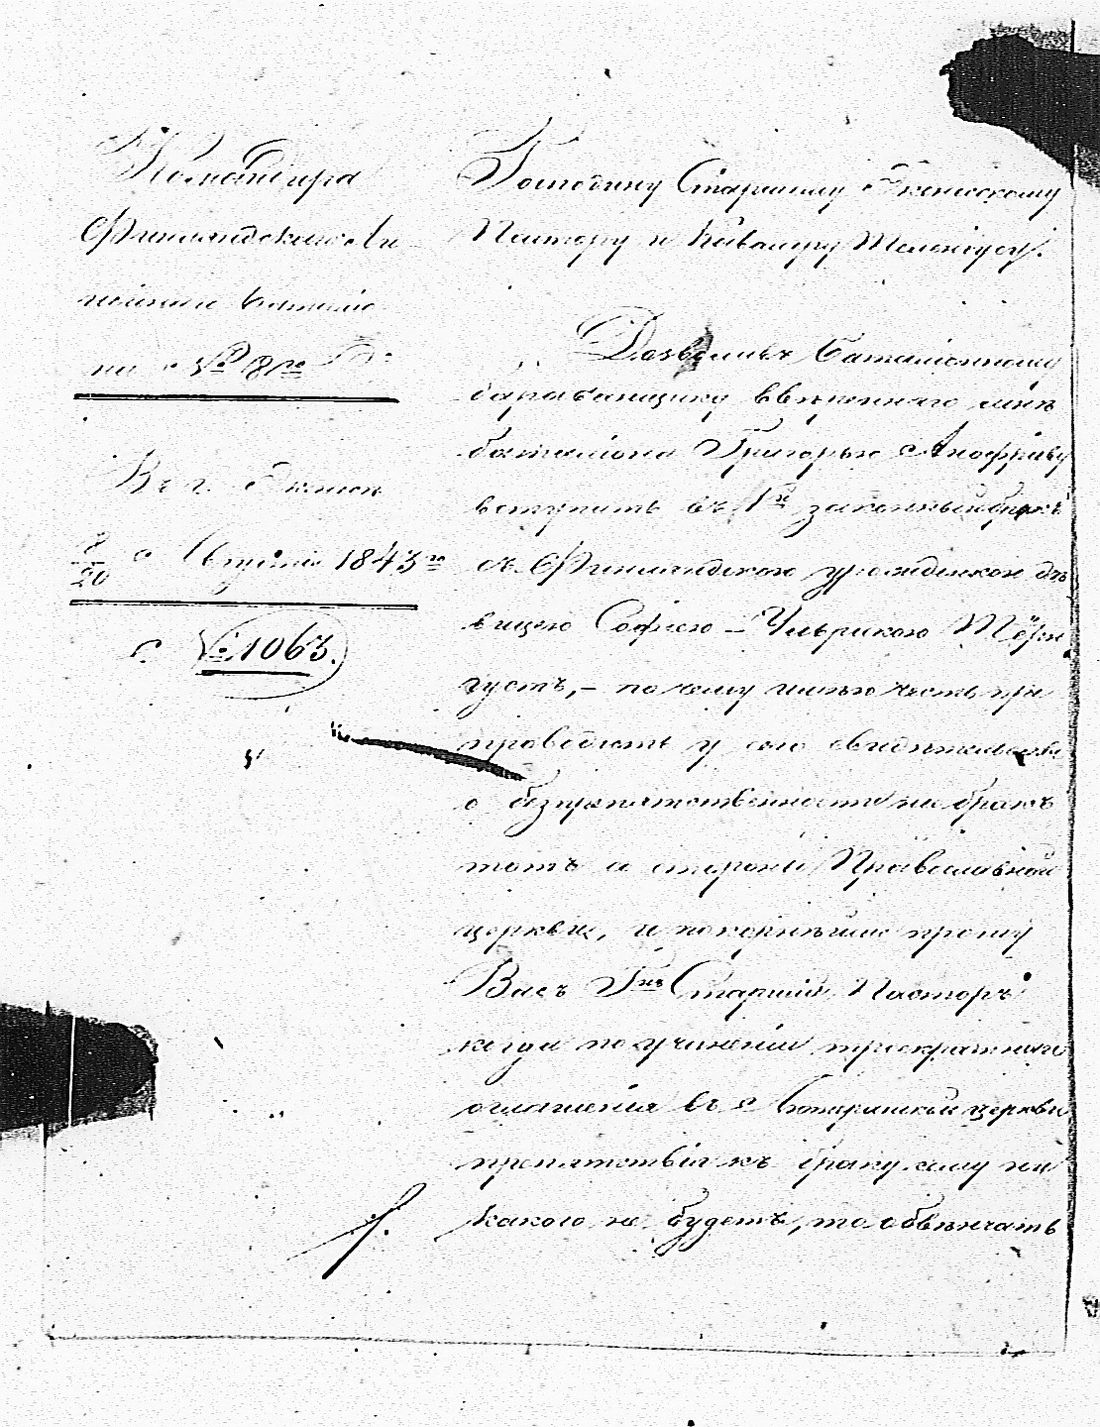 Командира
Финляндскаго Ли-
нейнаго баталіо
на № 8го
Въ г. Экнесъ
8/20 Августа 1843го
№ 1063.
Господину Старшему Экнескому
Пастору и Кавалеру
Дозволивъ баталіонному
барабанщику ввѣреннаго мнѣ
баталіона Григорью Анофріеву
вступить въ 1й законный бракъ
съ Финляндскою уроженкою дѣ
вицею Софіею-Ульрикою Тёрн
густъ, - по чему имѣю честь пре
проводить у сего свидѣтельство
о безпрепятственности на бракъ
тотъ со стороны Православной
церкви, и покорнѣйше прошу
Васъ Гнъ Старшій Пасторъ
когда по учиненіи троекратнаго
оглашенія въ Лютеранской церкви
препятствія къ браку сему ни
какого не будетъ, то обвѣнчать